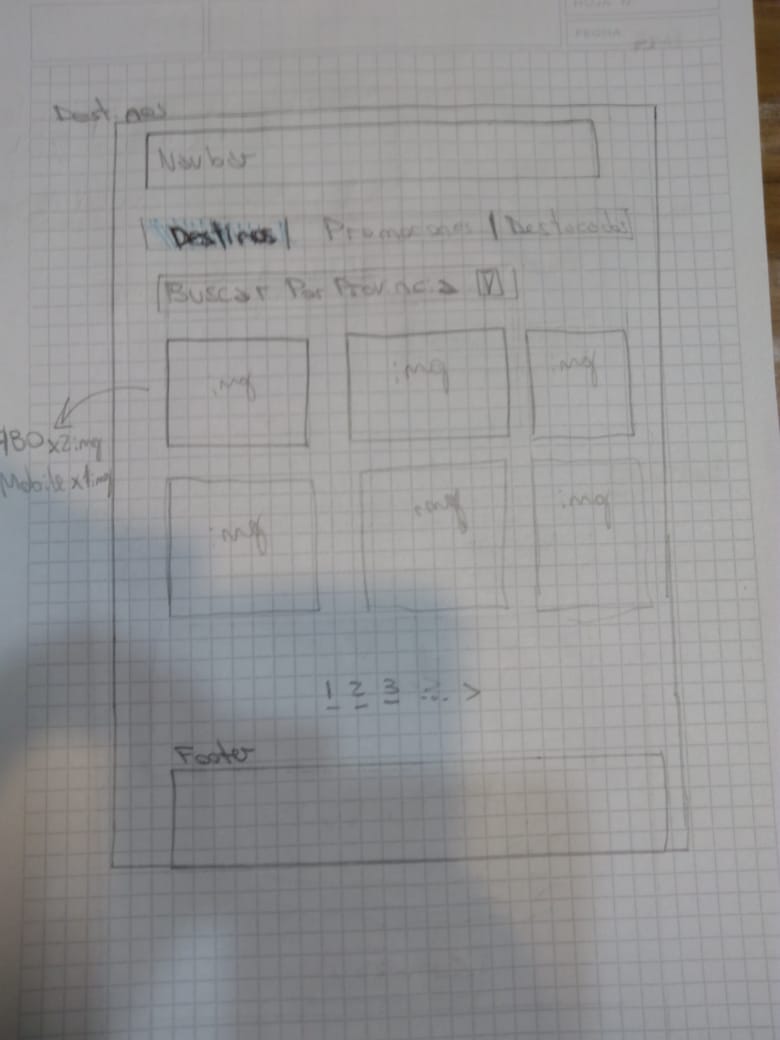 HOJA N
FECHA
Destinos
Navbar
Destinos | Promociones | Destacados
Buscar Por Provincia V
img img img
780 x2 img
Mobile x1 img
img img img
1 2 3 ... >
Footer